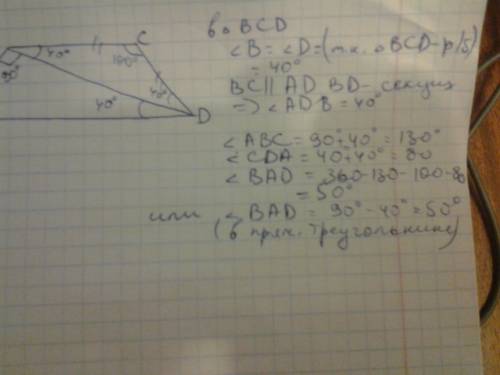 40°
C
90°
100°
40°
40°
D
в △ BCD
∠B = ∠D = (т.к. △ BCD - р/б)
= 40°
BC || AD BD - секущ
=> ∠ADB = 40°
∠ABC = 90° + 40° = 130°
∠CDA = 40° + 40° = 80
∠BAD = 360 - 130 - 100 - 80
= 50°
или ∠BAD = 90° - 40° = 50°
(в прям. треугольнике)